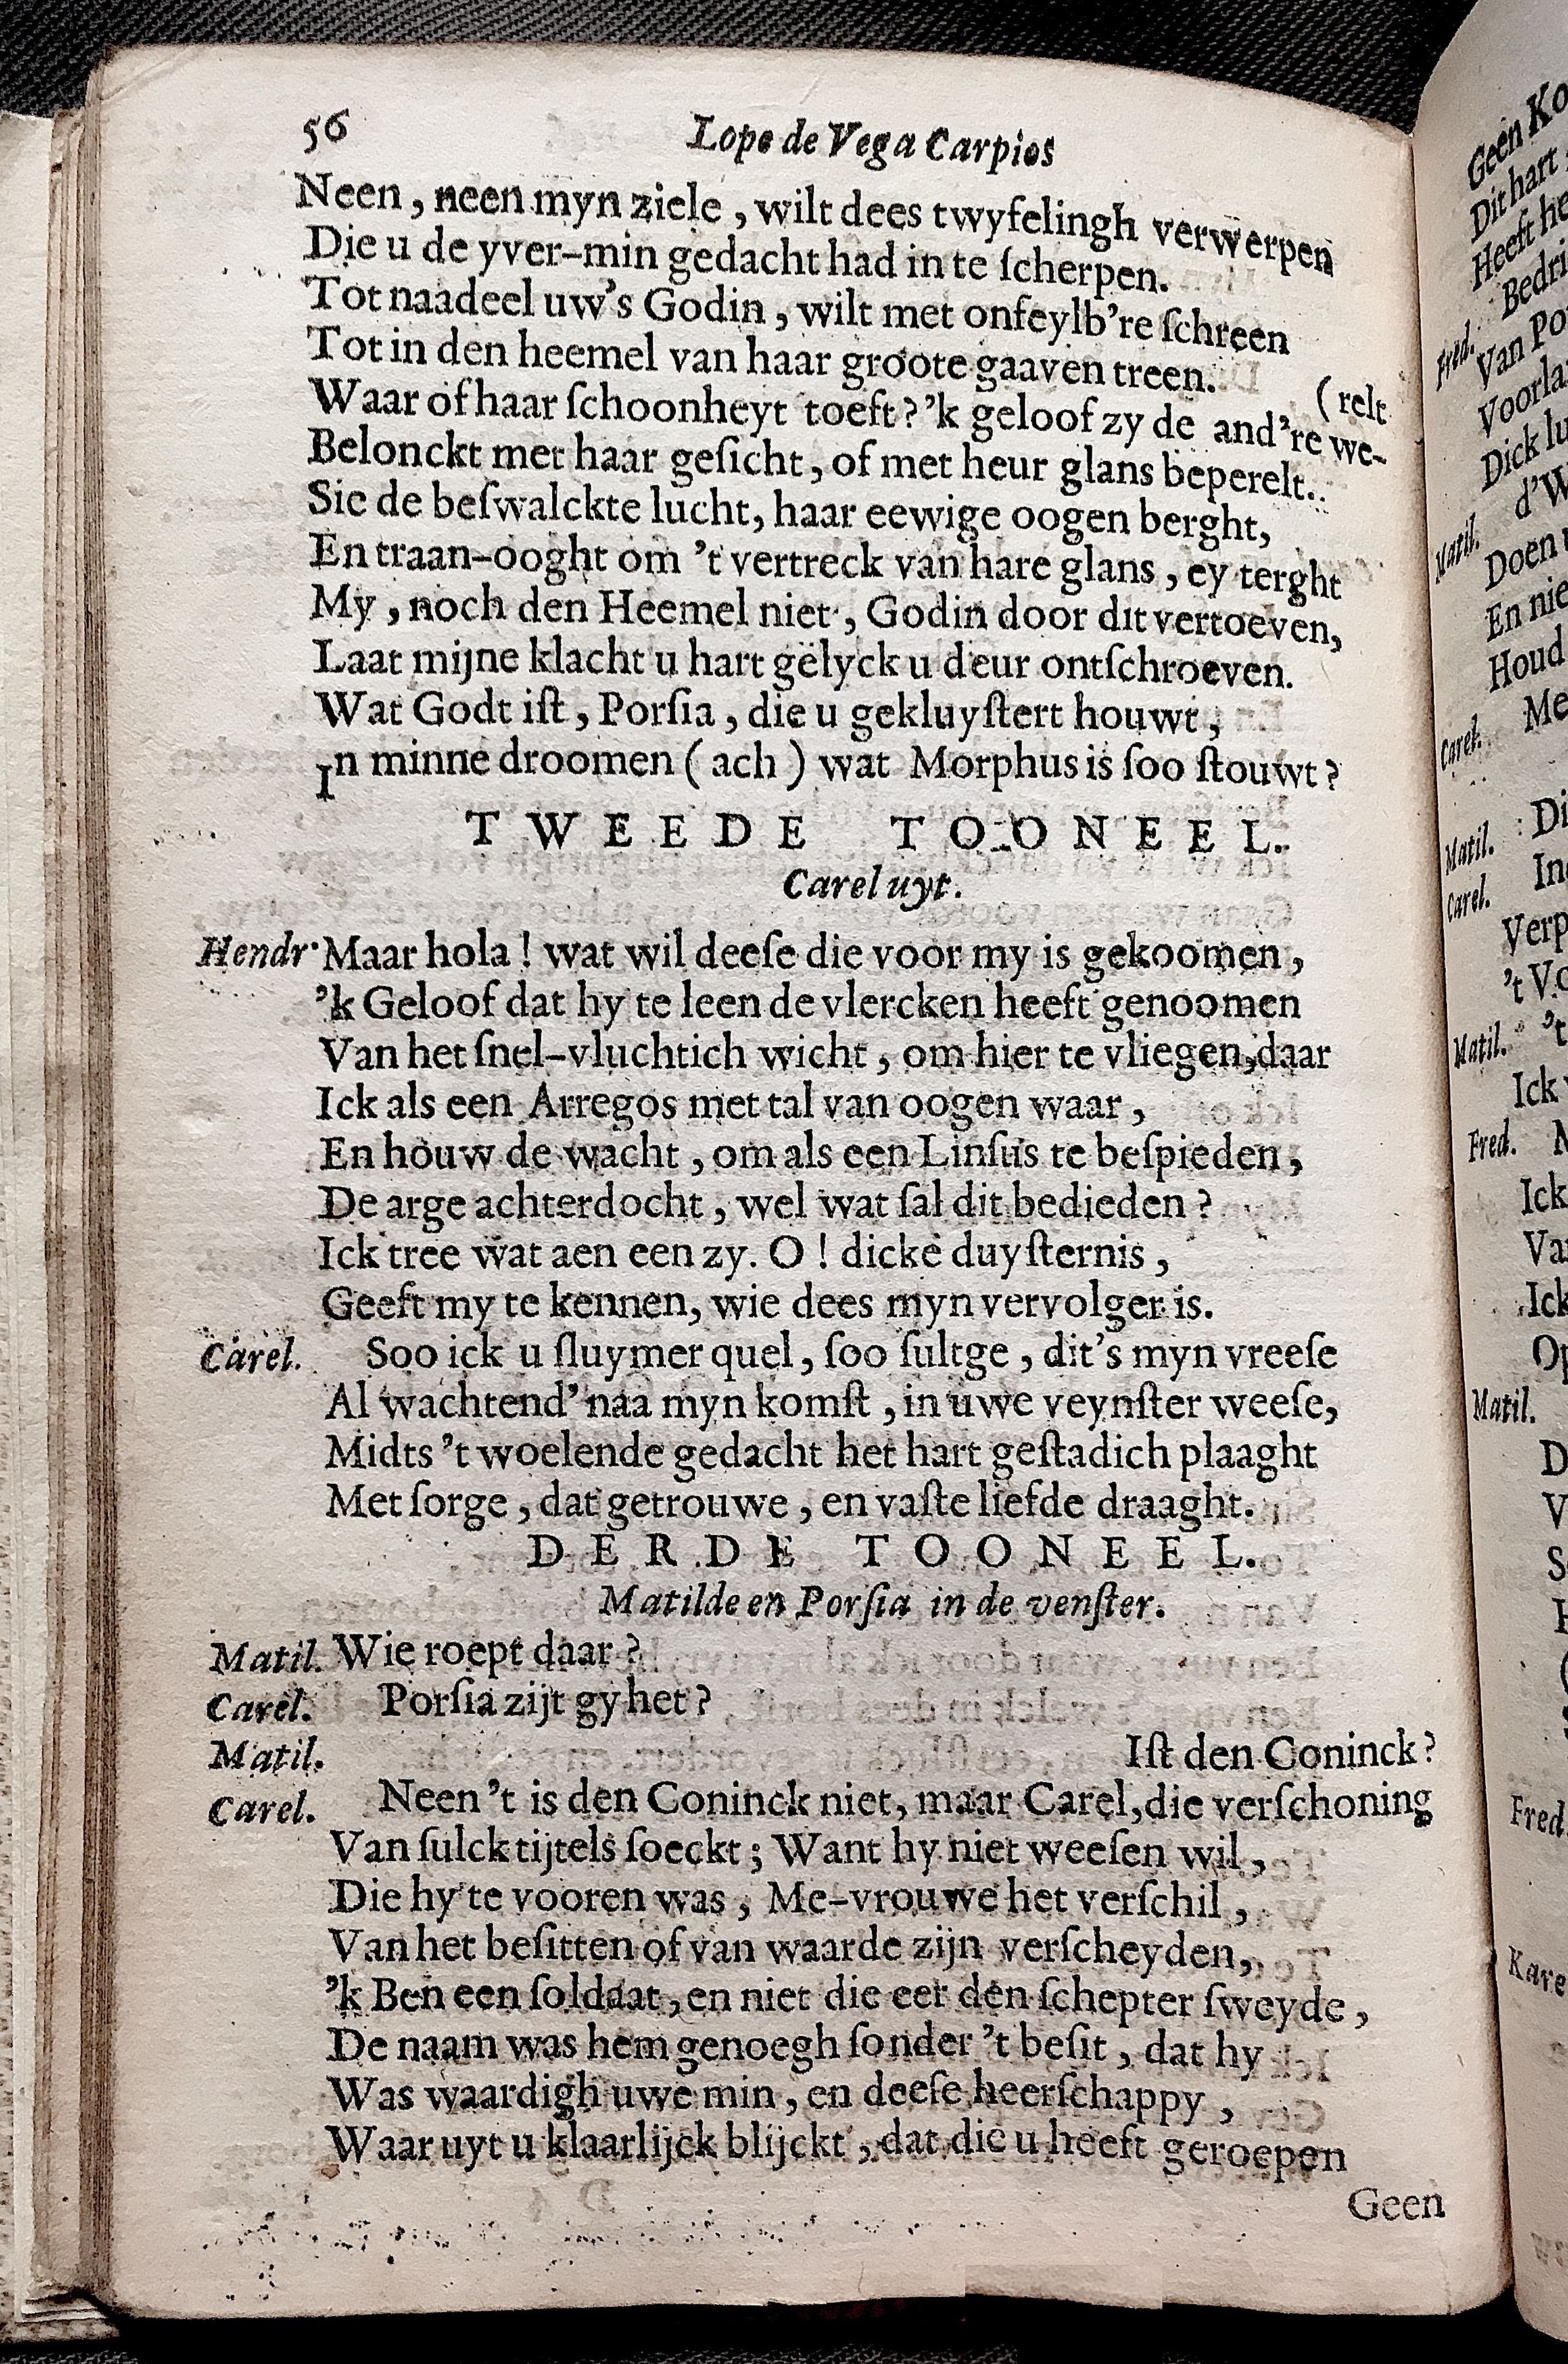 56 Lope de Vega Carpios
Neen, neen myn ziele, wilt dees twyfelingh verwerpen
Die u de yver-min gedacht had in te ſcherpen.
Tot naadeel uw's Godin, wilt met onfeylb're ſchreen
Tot in den heemel van haar groote gaaven treen.
(relt
Waar of haar ſchoonheyt toeft? 'k geloof zy de and're we-
Belonckt met haar geſicht, of met heur glans beperelt.
Sie de beſwalckte lucht, haar eewige oogen berght,
En traan-ooght om 't vertreck van hare glans, ey terght
My, noch den Heemel niet, Godin door dit vertoeven,
Laat mijne klacht u hart gelyck u deur ontſchroeven.
Wat Godt iſt, Porſia, die u gekluyſtert houwt,
In minne droomen (ach) wat Morphus is ſoo ſtouwt?
TWEEDE TOONEEL.
Carel uyt.
Hendr. Maar hola! wat wil deeſe die voor my is gekoomen,
'k Geloof dat hy te leen de vlercken heeft genoomen
Van het ſnel-vluchtich wicht, om hier te vliegen, daar
Ick als een Arregos met tal van oogen waar,
En houw de wacht, om als een Linſus te beſpieden,
De arge achterdocht, wel wat ſal dit bedieden?
Ick tree wat aen een zy. O! dicke duyſternis,
Geeft my te kennen, wie dees myn vervolger is.
Carel. Soo ick u ſluymer quel, ſoo ſultge, dit's myn vreeſe
Al wachtend' naa myn komſt, in uwe veynſter weeſe,
Midts 't woelende gedacht het hart geſtadich plaaght
Met ſorge, dat getrouwe, en vaſte liefde draaght.
DERDE TOONEEL.
Matilde en Porſia in de venſter.
Matil. Wie roept daar?
Carel. Porſia zijt gy het?
Matil. Iſt den Coninck?
Carel. Neen 't is den Coninck niet, maar Carel, die verſchoning
Van ſulck tijtels ſoeckt; Want hy niet weeſen wil,
Die hy te vooren was, Me-vrouwe het verſchil,
Van het beſitten of van waarde zijn verſcheyden,
'k Ben een ſoldaat, en niet die eer den ſchepter ſweyde,
De naam was hem genoegh ſonder 't beſit, dat hy
Was waardigh uwe min, en deeſe heerſchappy,
Waar uyt u klaarlijck blijckt, dat die u heeft geroepen
Geen